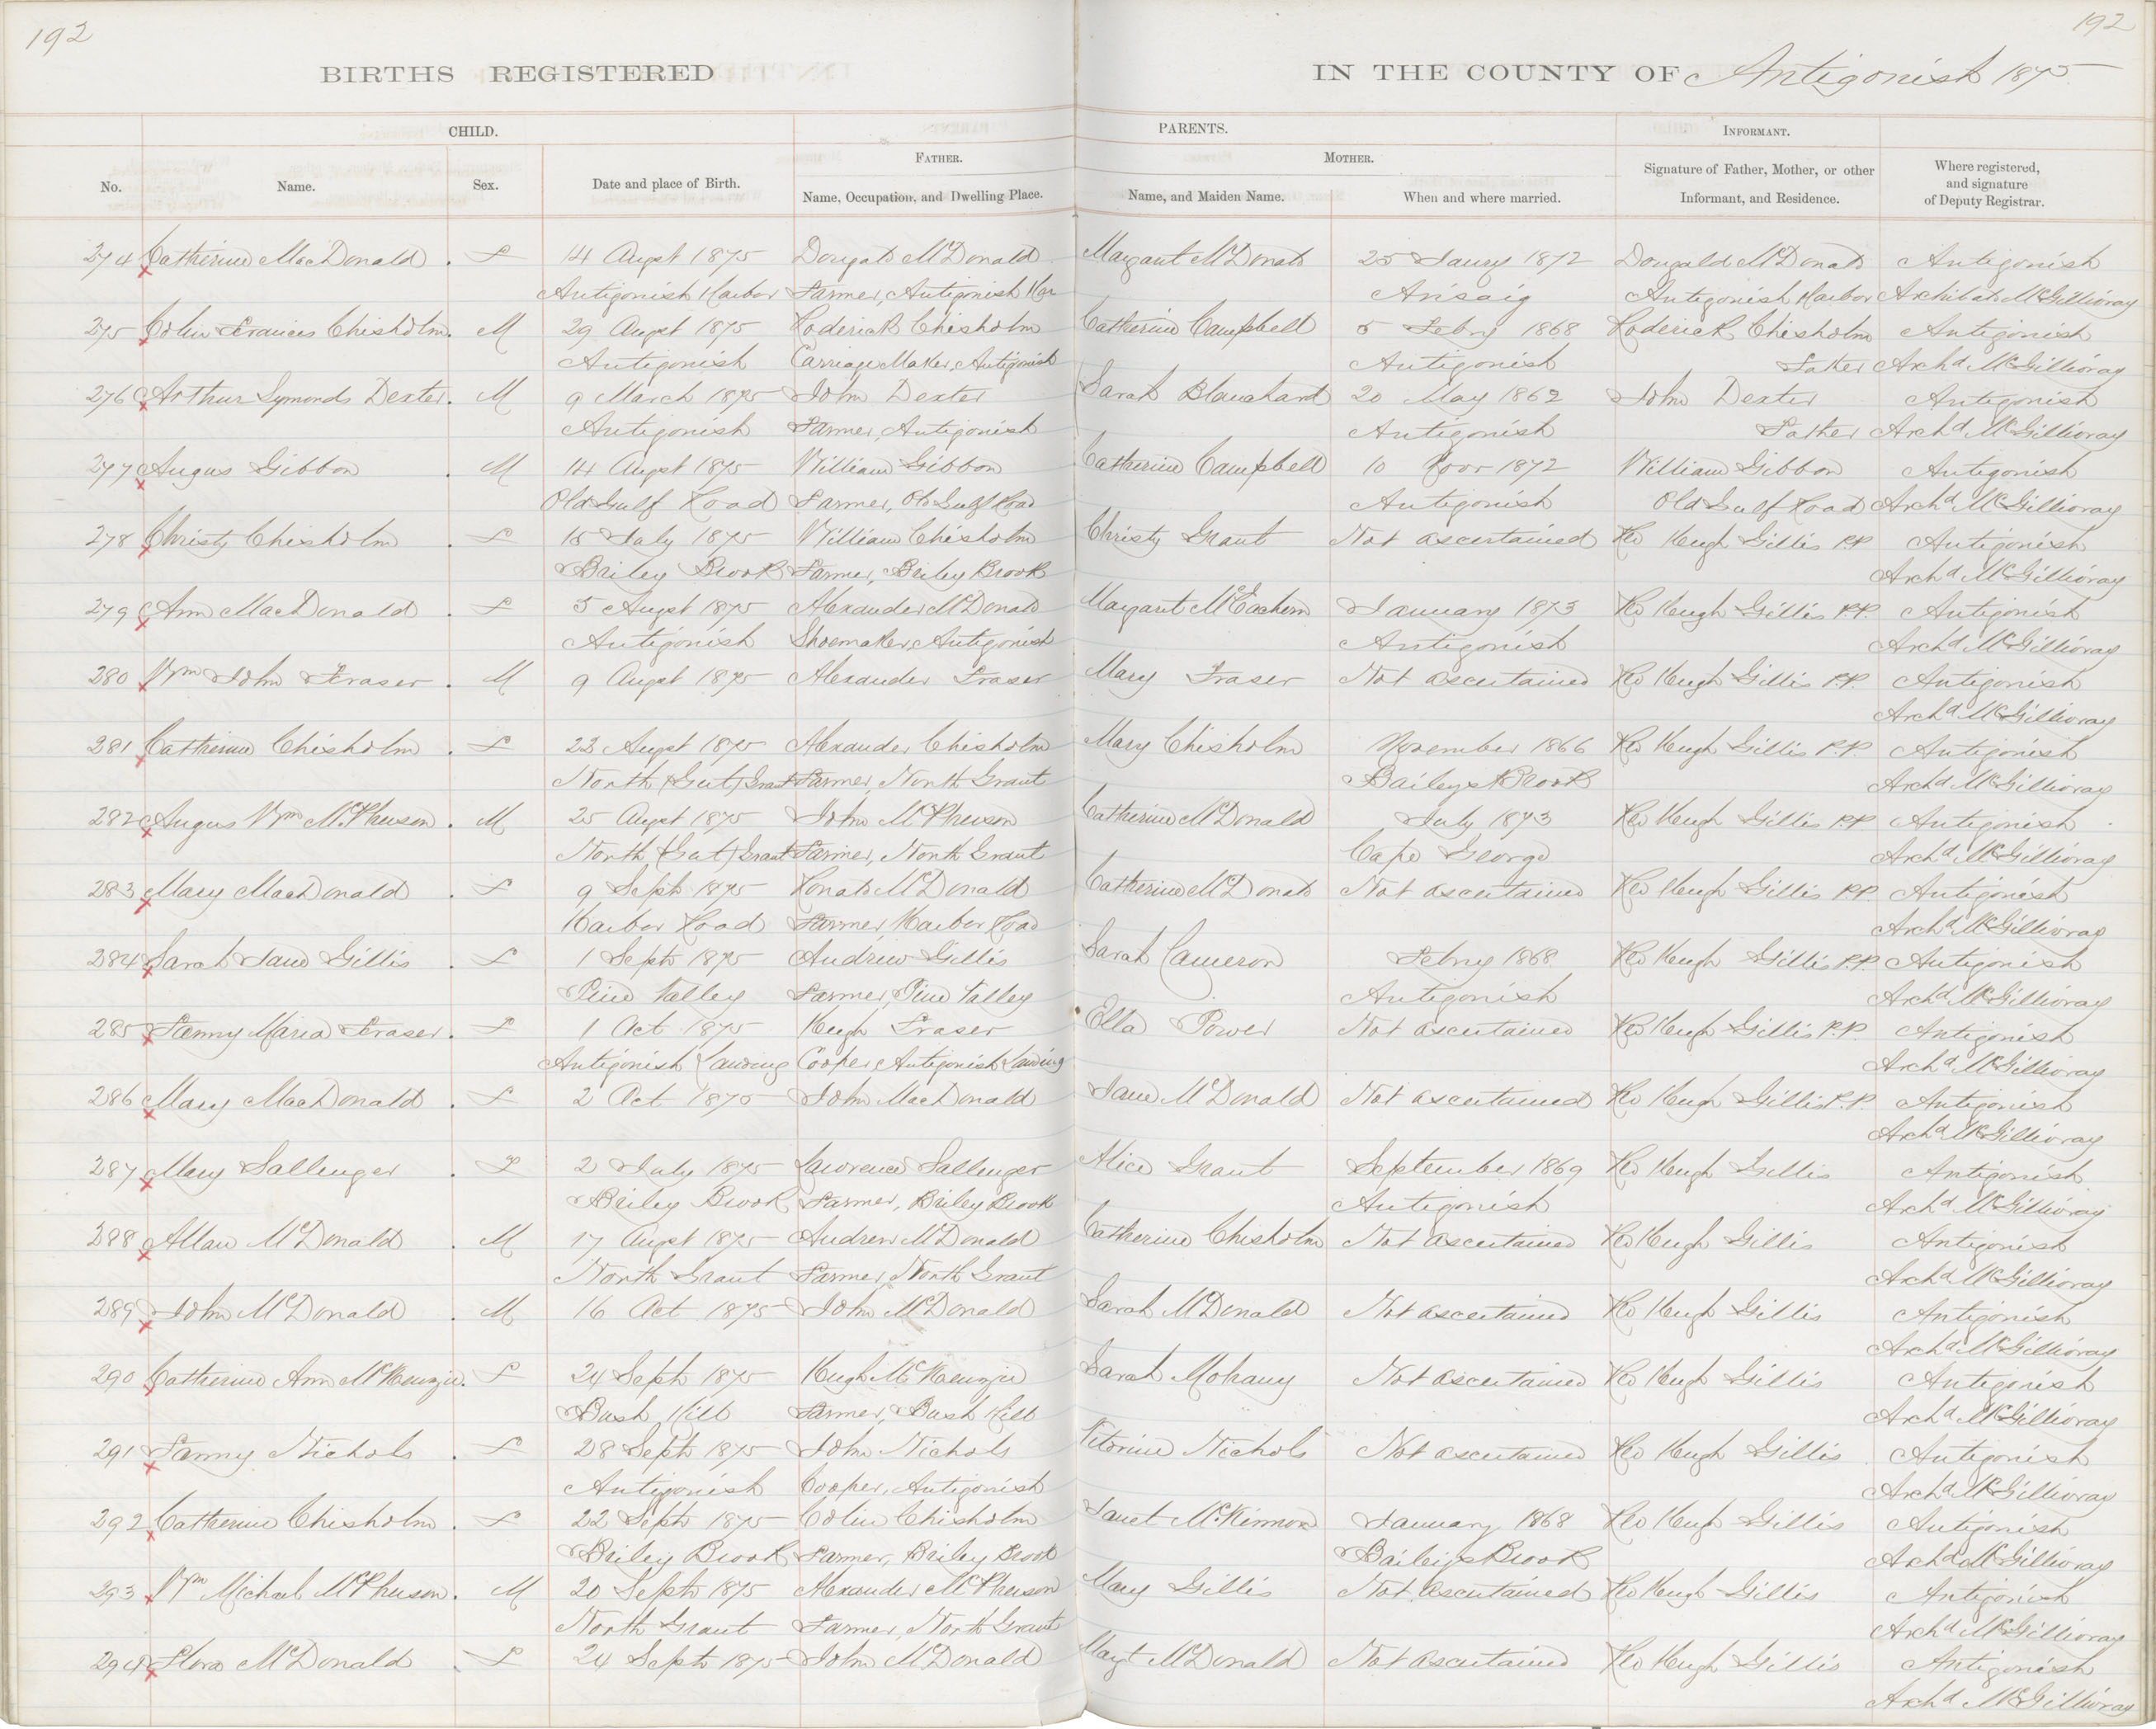 192
192
BIRTHS REGISTERED
IN THE COUNTY OF Antigonish 1875
CHILD.
PARENTS.
INFORMANT.
FATHER.
MOTHER.
No.
Name.
Sex.
Date and place of Birth.
Name, Occupation, and Dwelling Place.
Name, and Maiden Name.
When and where married.
Signature of Father, Mother, or other
Informant, and Residence.
Where registered,
and signature
of Deputy Registrar.
274 Catherine MacDonald . F 14 Augst 1875 Dougald McDonald Margaret McDonald 25 Jany 1872 Dougald McDonald Antigonish
Antigonish Harbor Farmer, Antigonish Har Arisaig Antigonish Harbor Archibald McGillivray
275 Colin Francis Chisholm. M 29 Augst 1875 Roderick Chisholm Catherine Campbell 5 Febry 1868 Roderick Chisholm Antigonish
Antigonish Carriage Maker, Antigonish Antigonish Father Archd McGillivray
276 Arthur Symonds Dexter. M 9 March 1875 John Dexter Sarah Blanchard 20 May 1862 John Dexter Antigonish
Antigonish Farmer, Antigonish Antigonish Father Archd McGillivray
277 Angus Gibbon . M 14 Augst 1875 William Gibbon Catherine Campbell 10 1872 William Gibbon Antigonish
Old Gulf Road Farmer, Old Gulf Road Antigonish Old Gulf Road Archd McGillivray
278 Christy Chisholm . F 15 July 1875 William Chisholm Christy Grant Not ascertained Rev Hugh Gillis P.P. Antigonish
Briley Brook Farmer, Briley Brook Archd McGillivray
279 Ann MacDonald . F 5 Augst 1875 Alexander McDonald Margaret McEachern January 1873 Rev Hugh Gillis P.P. Antigonish
Antigonish Shoemaker, Antigonish Antigonish Archd McGillivray
280 Wm John Fraser . M 9 Augst 1875 Alexander Fraser Mary Fraser Not ascertained Rev Hugh Gillis P.P. Antigonish
Archd McGillivray
281 Catherine Chisholm . F 22 Augst 1875 Alexander Chisholm Mary Chisholm November 1866 Rev Hugh Gillis P.P. Antigonish
North (Gut) Grant Farmer, North Grant Baileys Brook Archd McGillivray
282 Angus Wm McPherson . M 25 Augst 1875 John McPherson Catherine McDonald July 1873 Rev Hugh Gillis P.P. Antigonish
North (Gut) Grant Farmer, North Grant Cape George Archd McGillivray
283 Mary MacDonald . F 9 Sept 1875 Ronald McDonald Catherine McDonald Not ascertained Rev Hugh Gillis P.P. Antigonish
Harbor Road Farmer, Harbor Road Archd McGillivray
284 Sarah Jane Gillis . F 1 Sept 1875 Andrew Gillis Sarah Cameron Febry 1868 Rev Hugh Gillis P.P. Antigonish
Pine Valley Farmer, Pine Valley Antigonish Archd McGillivray
285 Fanny Maria Fraser . F 1 Oct 1875 Hugh Fraser Ella Power Not ascertained Rev Hugh Gillis P.P. Antigonish
Antigonish Landing Cooper, Antigonish Landing Archd McGillivray
286 Mary MacDonald . F 2 Oct 1875 John MacDonald Jane McDonald Not ascertained Rev Hugh Gillis P.P. Antigonish
Archd McGillivray
287 Mary Sallenger . F 2 July 1875 Lawrence Sallenger Alice Grant September 1869 Rev Hugh Gillis Antigonish
Briley Brook Farmer, Briley Brook Antigonish Archd McGillivray
288 Allan McDonald . M 17 Augst 1875 Andrew McDonald Catherine Chisholm Not ascertained Rev Hugh Gillis Antigonish
North Grant Farmer, North Grant Archd McGillivray
289 John McDonald . M 16 Oct 1875 John McDonald Sarah McDonald Not ascertained Rev Hugh Gillis Antigonish
Archd McGillivray
290 Catherine Ann McKenzie. F 24 Sept 1875 Hugh McKenzie Sarah Mohany Not ascertained Rev Hugh Gillis Antigonish
Bush Hill Farmer, Bush Hill Archd McGillivray
291 Fanny Nichols . F 28 Sept 1875 John Nichols Nichols Not ascertained Rev Hugh Gillis Antigonish
Antigonish Cooper, Antigonish Archd McGillivray
292 Catherine Chisholm . F 22 Sept 1875 Colin Chisholm Janet McKinnon January 1868 Rev Hugh Gillis Antigonish
Briley Brook Farmer, Briley Brook Baileys Brook Archd McGillivray
293 Wm Michael McPherson . M 20 Sept 1875 Alexander McPherson Mary Gillis Not ascertained Rev Hugh Gillis Antigonish
North Grant Farmer, North Grant Archd McGillivray
294 Flora McDonald . F 24 Sept 1875 John McDonald Margt McDonald Not ascertained Rev Hugh Gillis Antigonish
Archd McGillivray